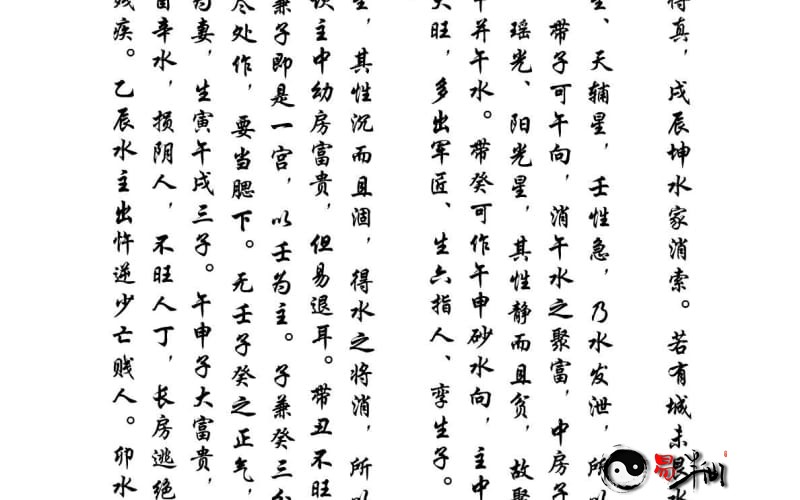 得真，戌辰坤水家消索。若有城未
生、天辅星，壬性急，乃水发泄，所以
带子可午向，消午水之聚富，中房子
瑶光、阳光星，其性静而且贪，故聚
午并午水。带癸可作午申砂水向，主中
大旺，多出军匠、生六指人、孪生子。
生，其性沉而且涸，得水之将消，所以
主中幼房富贵，但易退耳。带丑不旺
兼子即是一宫，以壬为主。子兼癸三分
尽处作，要当腮下。无壬子癸之正气，
为妻，生寅午戌三子。午申子大富贵，
辛水，损阴人，不旺人丁，长房逃绝
残疾。乙辰水主出忤逆少亡贱人。卯水
易半仙